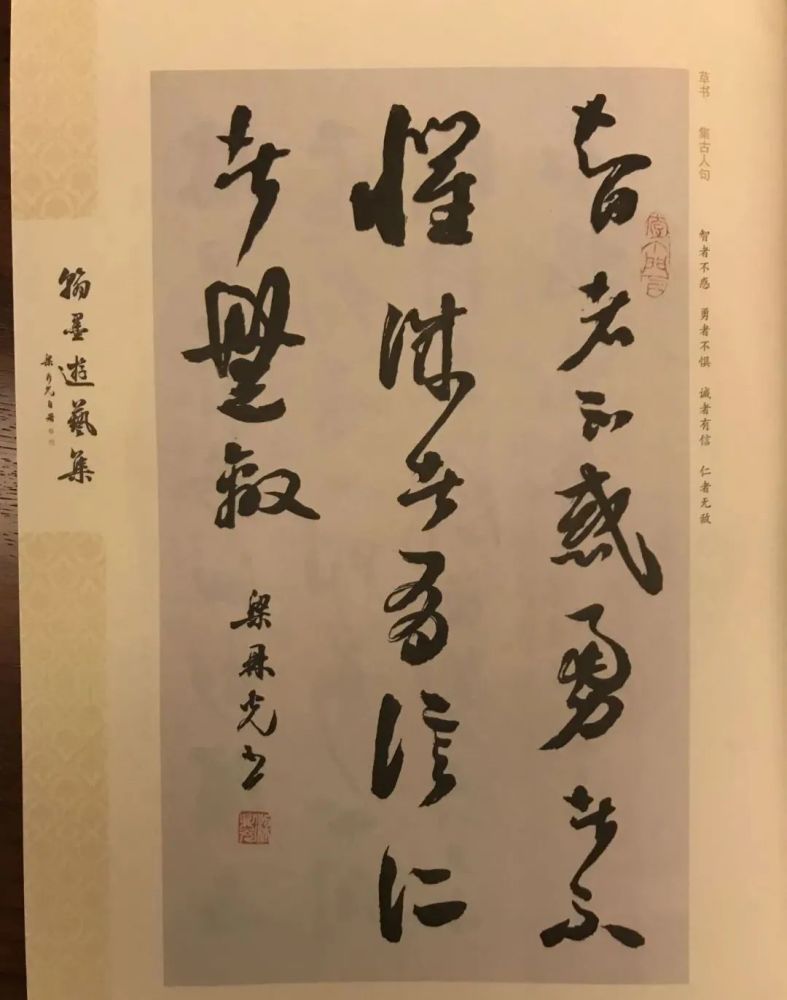 草书 集古人句 智者不惑 勇者不惧 诚者有信 仁者无敌
智者不惑勇者不
懼誠者有信仁
者無敵
梁鼎光书
翰墨遊藝集
梁鼎光自署